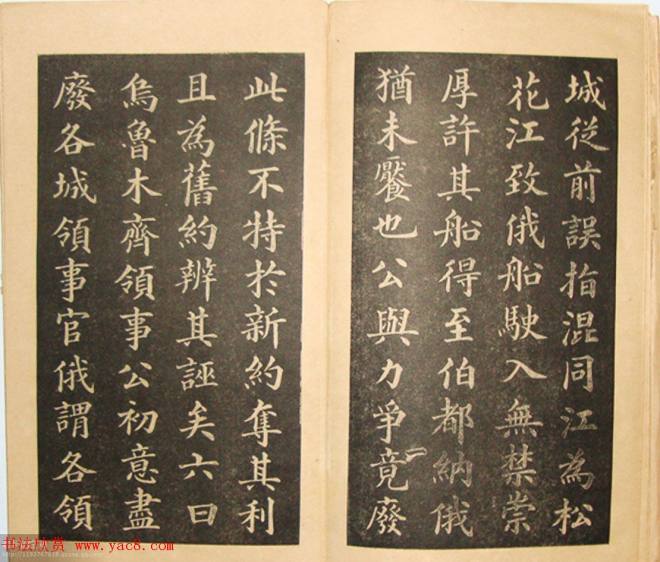 城從前誤指混同江為松
花江致俄船駛入無禁崇
厚許其船得至伯都納俄
猶未饜也公與力爭竟廢
此條不特於新約奪其利
且為舊約辨其誣矣六曰
烏魯木齊領事公初意盡
廢各城領事官俄謂各領
书法欣赏 www.yac8.com